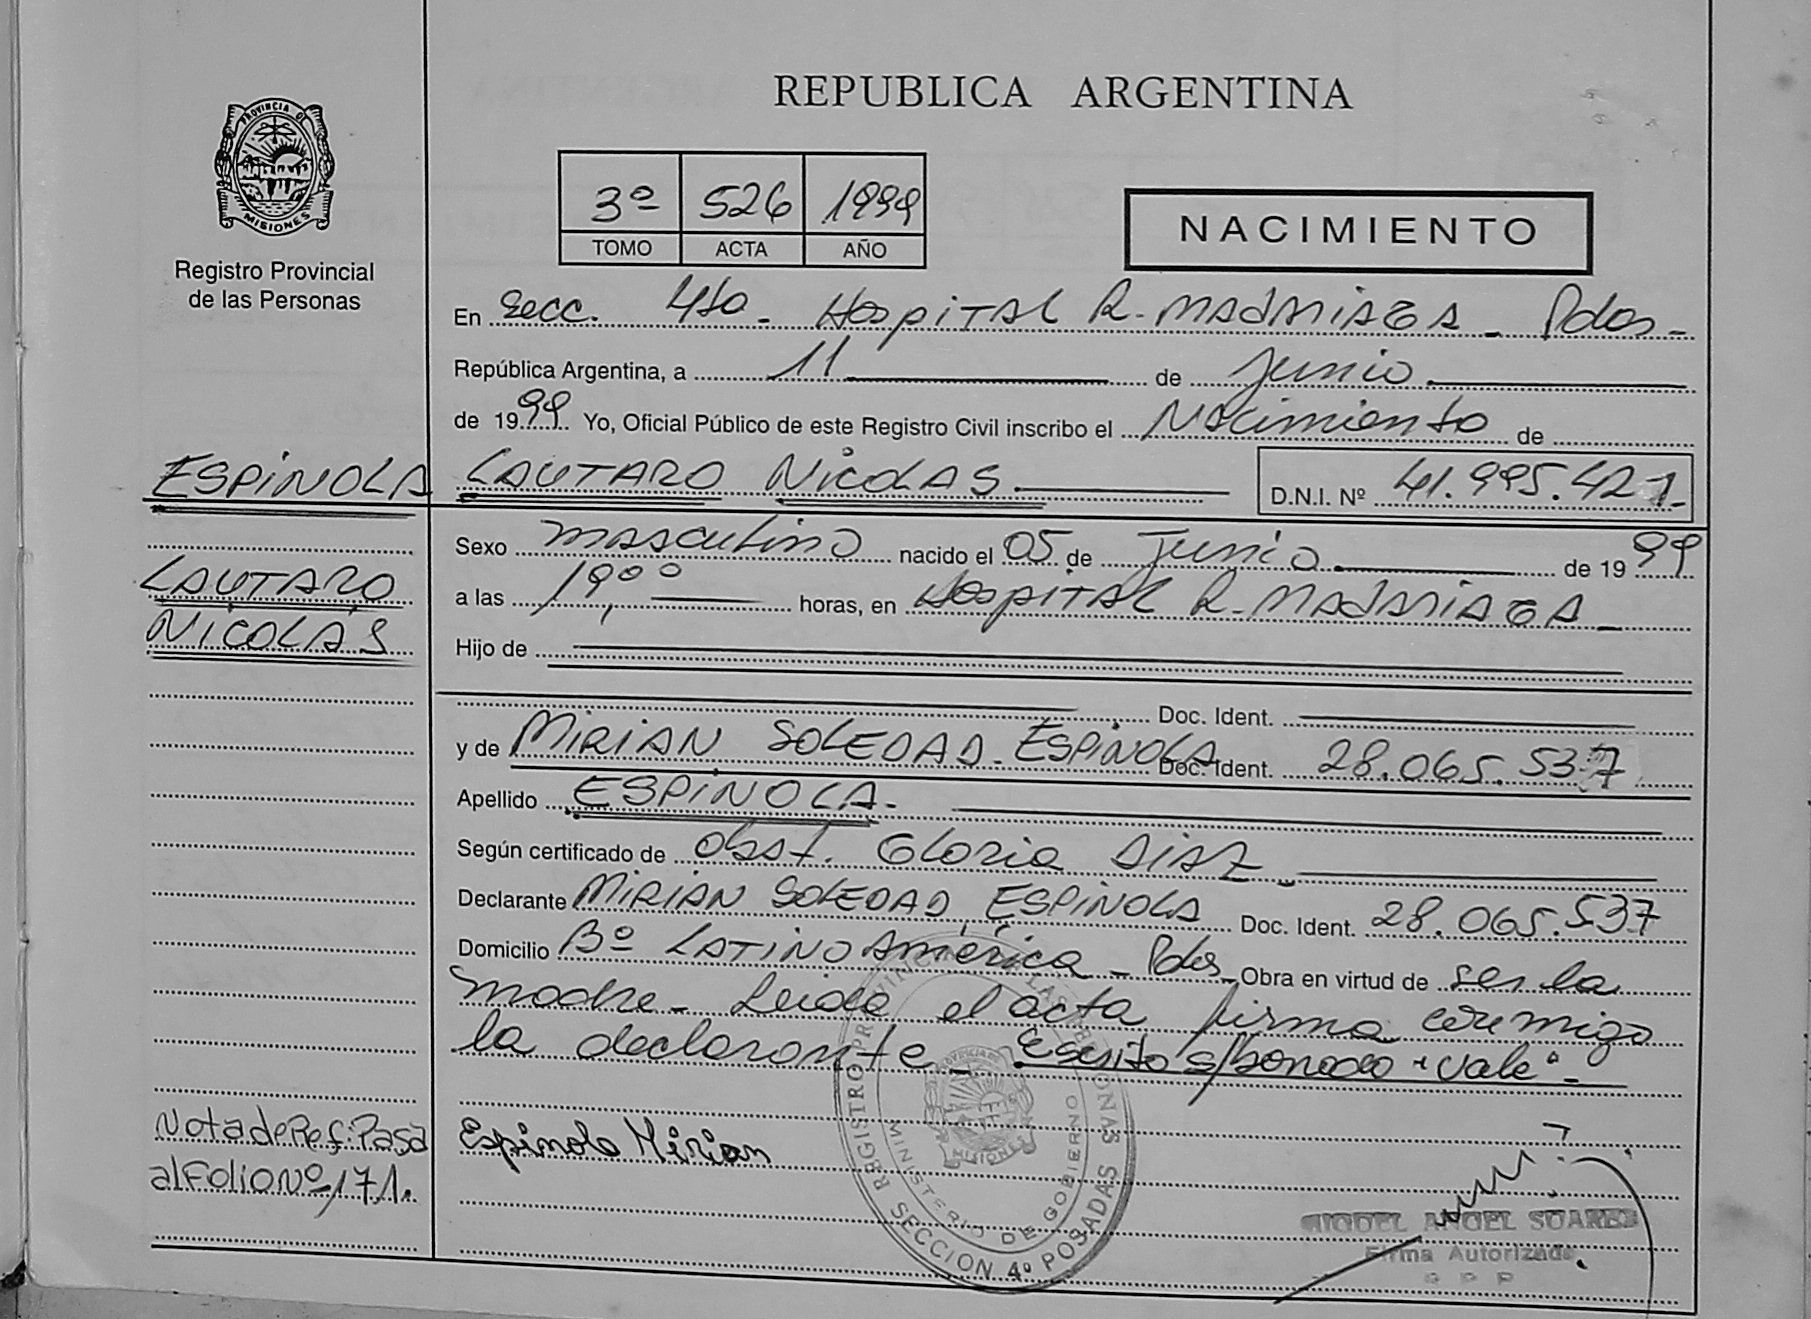 REPUBLICA ARGENTINA
PROVINCIA DE
MISIONES
Registro Provincial
de las Personas
3º 526 1999
TOMO ACTA AÑO
NACIMIENTO
En Secc. 4ta - Hospital R. MADARIAGA - Pdas -
República Argentina, a 11 de Junio
de 1999 Yo, Oficial Público de este Registro Civil inscribo el Nacimiento de
ESPINOLA LAUTARO NICOLAS D.N.I. Nº 41.995.421-
Sexo masculino nacido el 05 de Junio de 1999
LAUTARO
a las 19,00 horas, en Hospital R. MADARIAGA -
NICOLÁS
Hijo de
Doc. Ident.
y de MIRIAN SOLEDAD - ESPINOLA Doc. Ident. 28.065.537
Apellido ESPINOLA -
Según certificado de Obst. Gloria DIAZ -
Declarante MIRIAN SOLEDAD ESPINOLA Doc. Ident. 28.065.537
Domicilio Bº LATINOAmérica - Pdas - Obra en virtud de ser la
madre - Leida el acta firma conmigo
la declarante - Escrito s/borrado "Vale" -
Nota de Ref: Pasa
al Folio Nº 171.
Espinola Mirian
REGISTRO PROVINCIAL DE LAS PERSONAS
MINISTERIO DE GOBIERNO
MISIONES
SECCION 4º POSADAS
MIGUEL ANGEL SUAREZ
Firma Autorizada